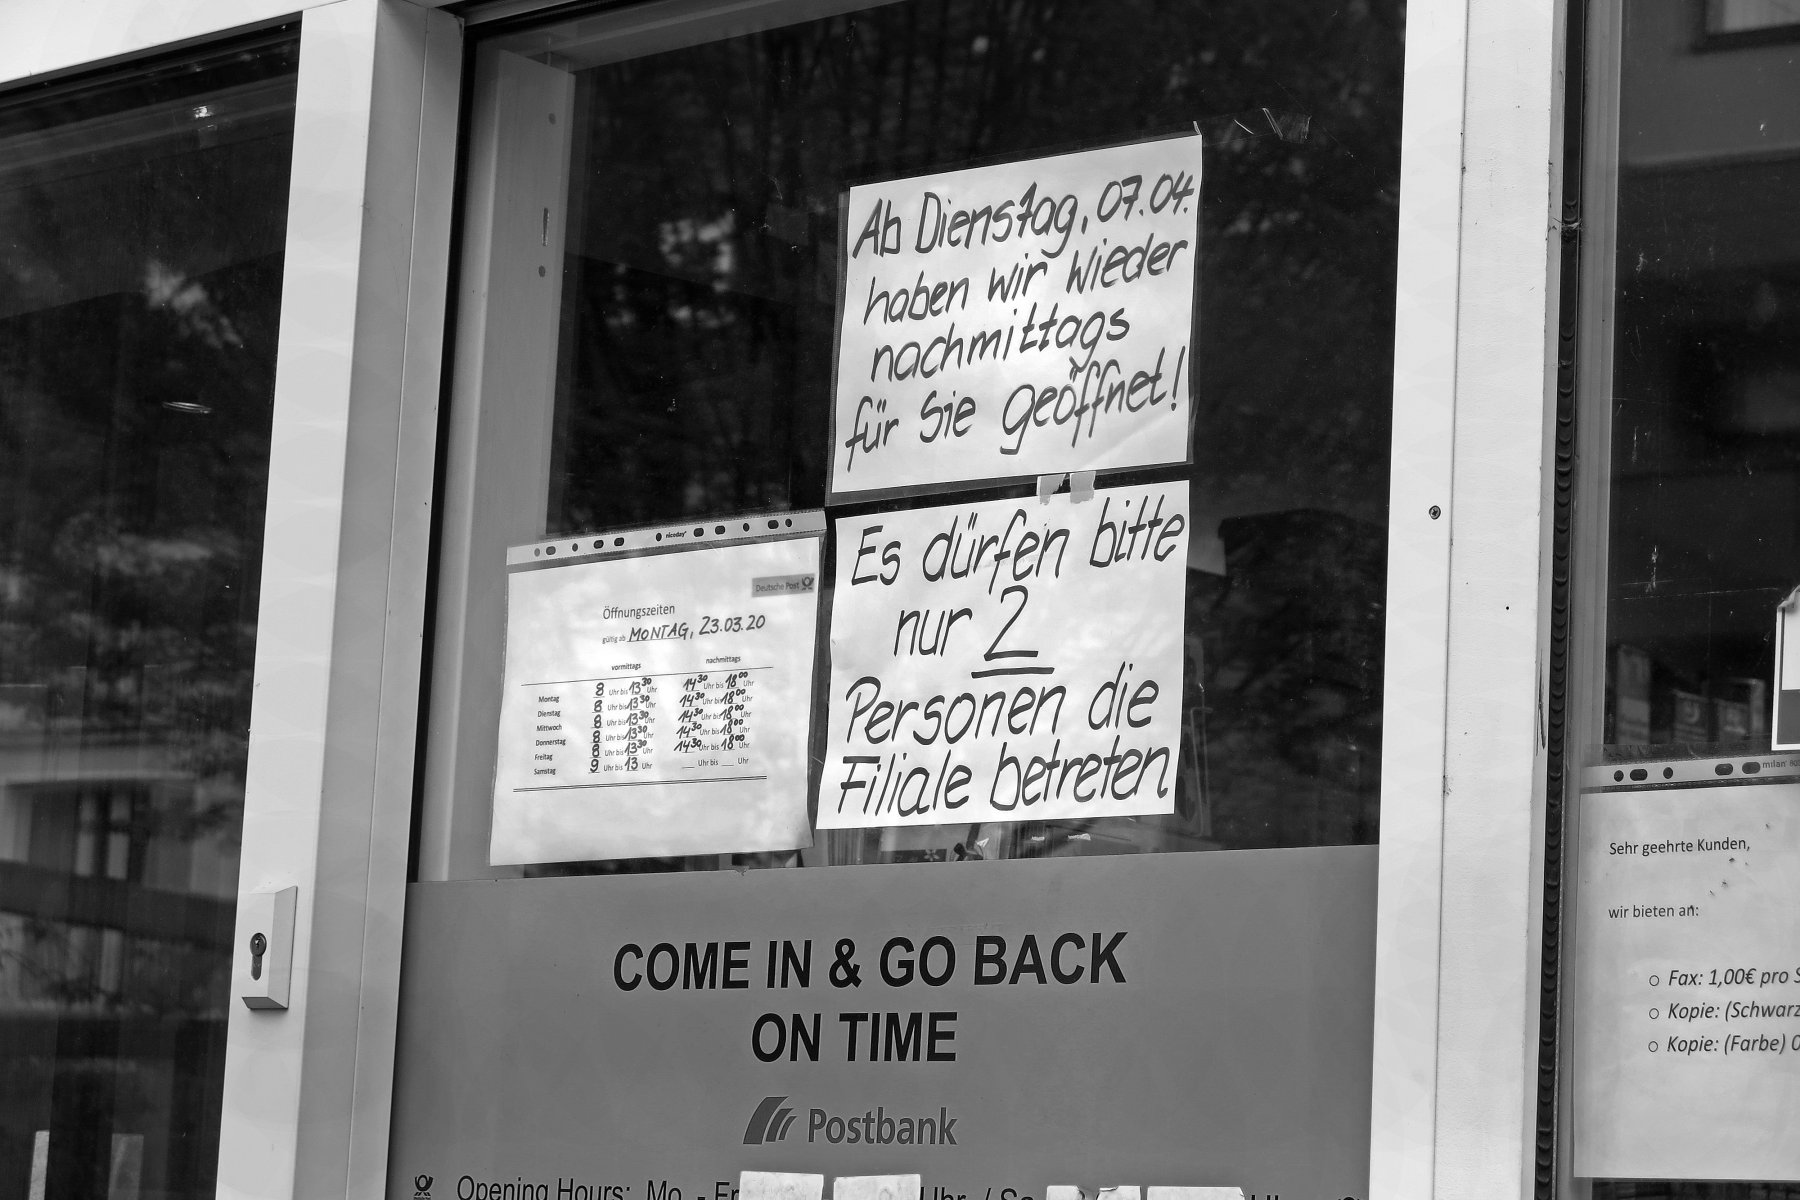 Ab Dienstag, 07.04.
haben wir wieder
nachmittags
für Sie geöffnet!
Es dürfen bitte
nur 2
Personen die
Filiale betreten.
niceday
Deutsche Post
Öffnungszeiten
gültig ab MONTAG, 23.03.20
vormittags nachmittags
Montag 8 Uhr bis 13³⁰ Uhr 14³⁰ Uhr bis 18⁰⁰ Uhr
Dienstag 8 Uhr bis 13³⁰ Uhr 14³⁰ Uhr bis 18⁰⁰ Uhr
Mittwoch 8 Uhr bis 13³⁰ Uhr 14³⁰ Uhr bis 18⁰⁰ Uhr
Donnerstag 8 Uhr bis 13³⁰ Uhr 14³⁰ Uhr bis 18⁰⁰ Uhr
Freitag 8 Uhr bis 13³⁰ Uhr 14³⁰ Uhr bis 18⁰⁰ Uhr
Samstag 9 Uhr bis 13 Uhr ___ Uhr bis ___ Uhr
COME IN & GO BACK
ON TIME
Postbank
Opening Hours: Mo. - Fr Uhr / Sa
milan
Sehr geehrte Kunden,
wir bieten an:
Fax: 1,00€ pro
Kopie: (Schwarz
Kopie: (Farbe)